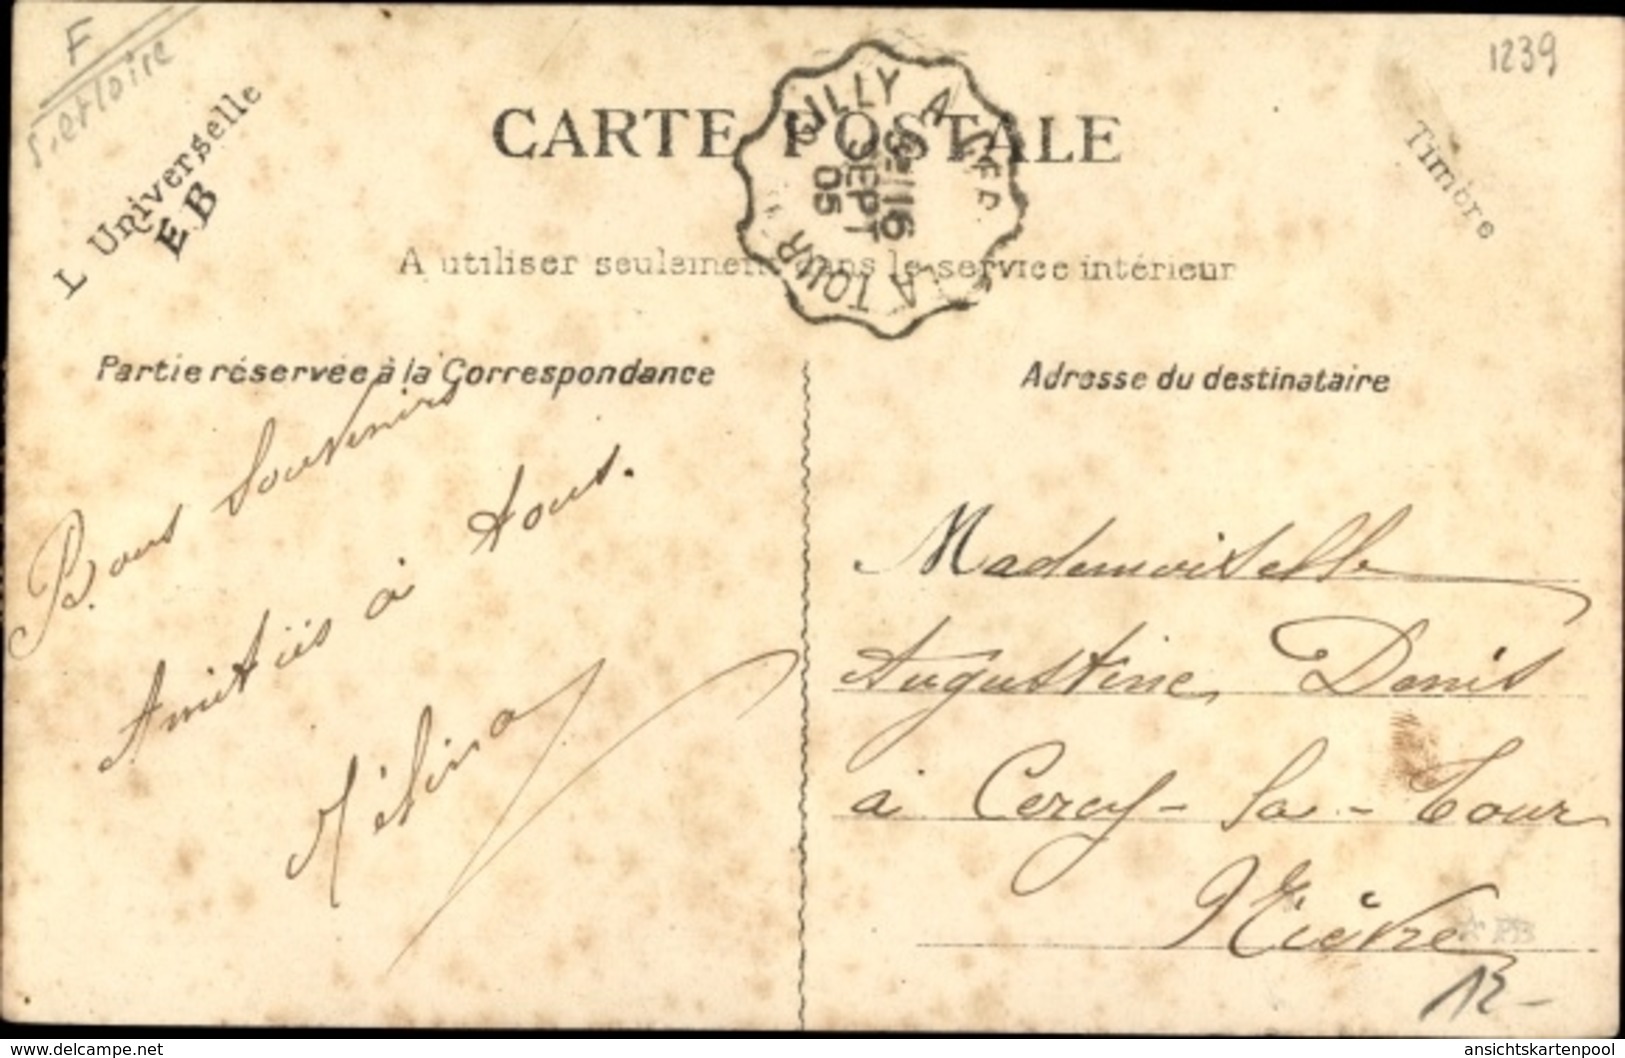 F
S. et loire
L'Universelle
EB
1239
CARTE POSTALE
Timbre
GILLY A CERCY LA TOUR
2E 16
SEPT
05
A utiliser seulement dans le service intérieur
Partie réservée à la Correspondance
Bons Souvenirs
Amitiés à tous.
Mélina
Adresse du destinataire
Mademoiselle
Augustine Denis
à Cercy-la-Tour
Nièvre
12-
ansichtskartenpool
www.delcampe.net